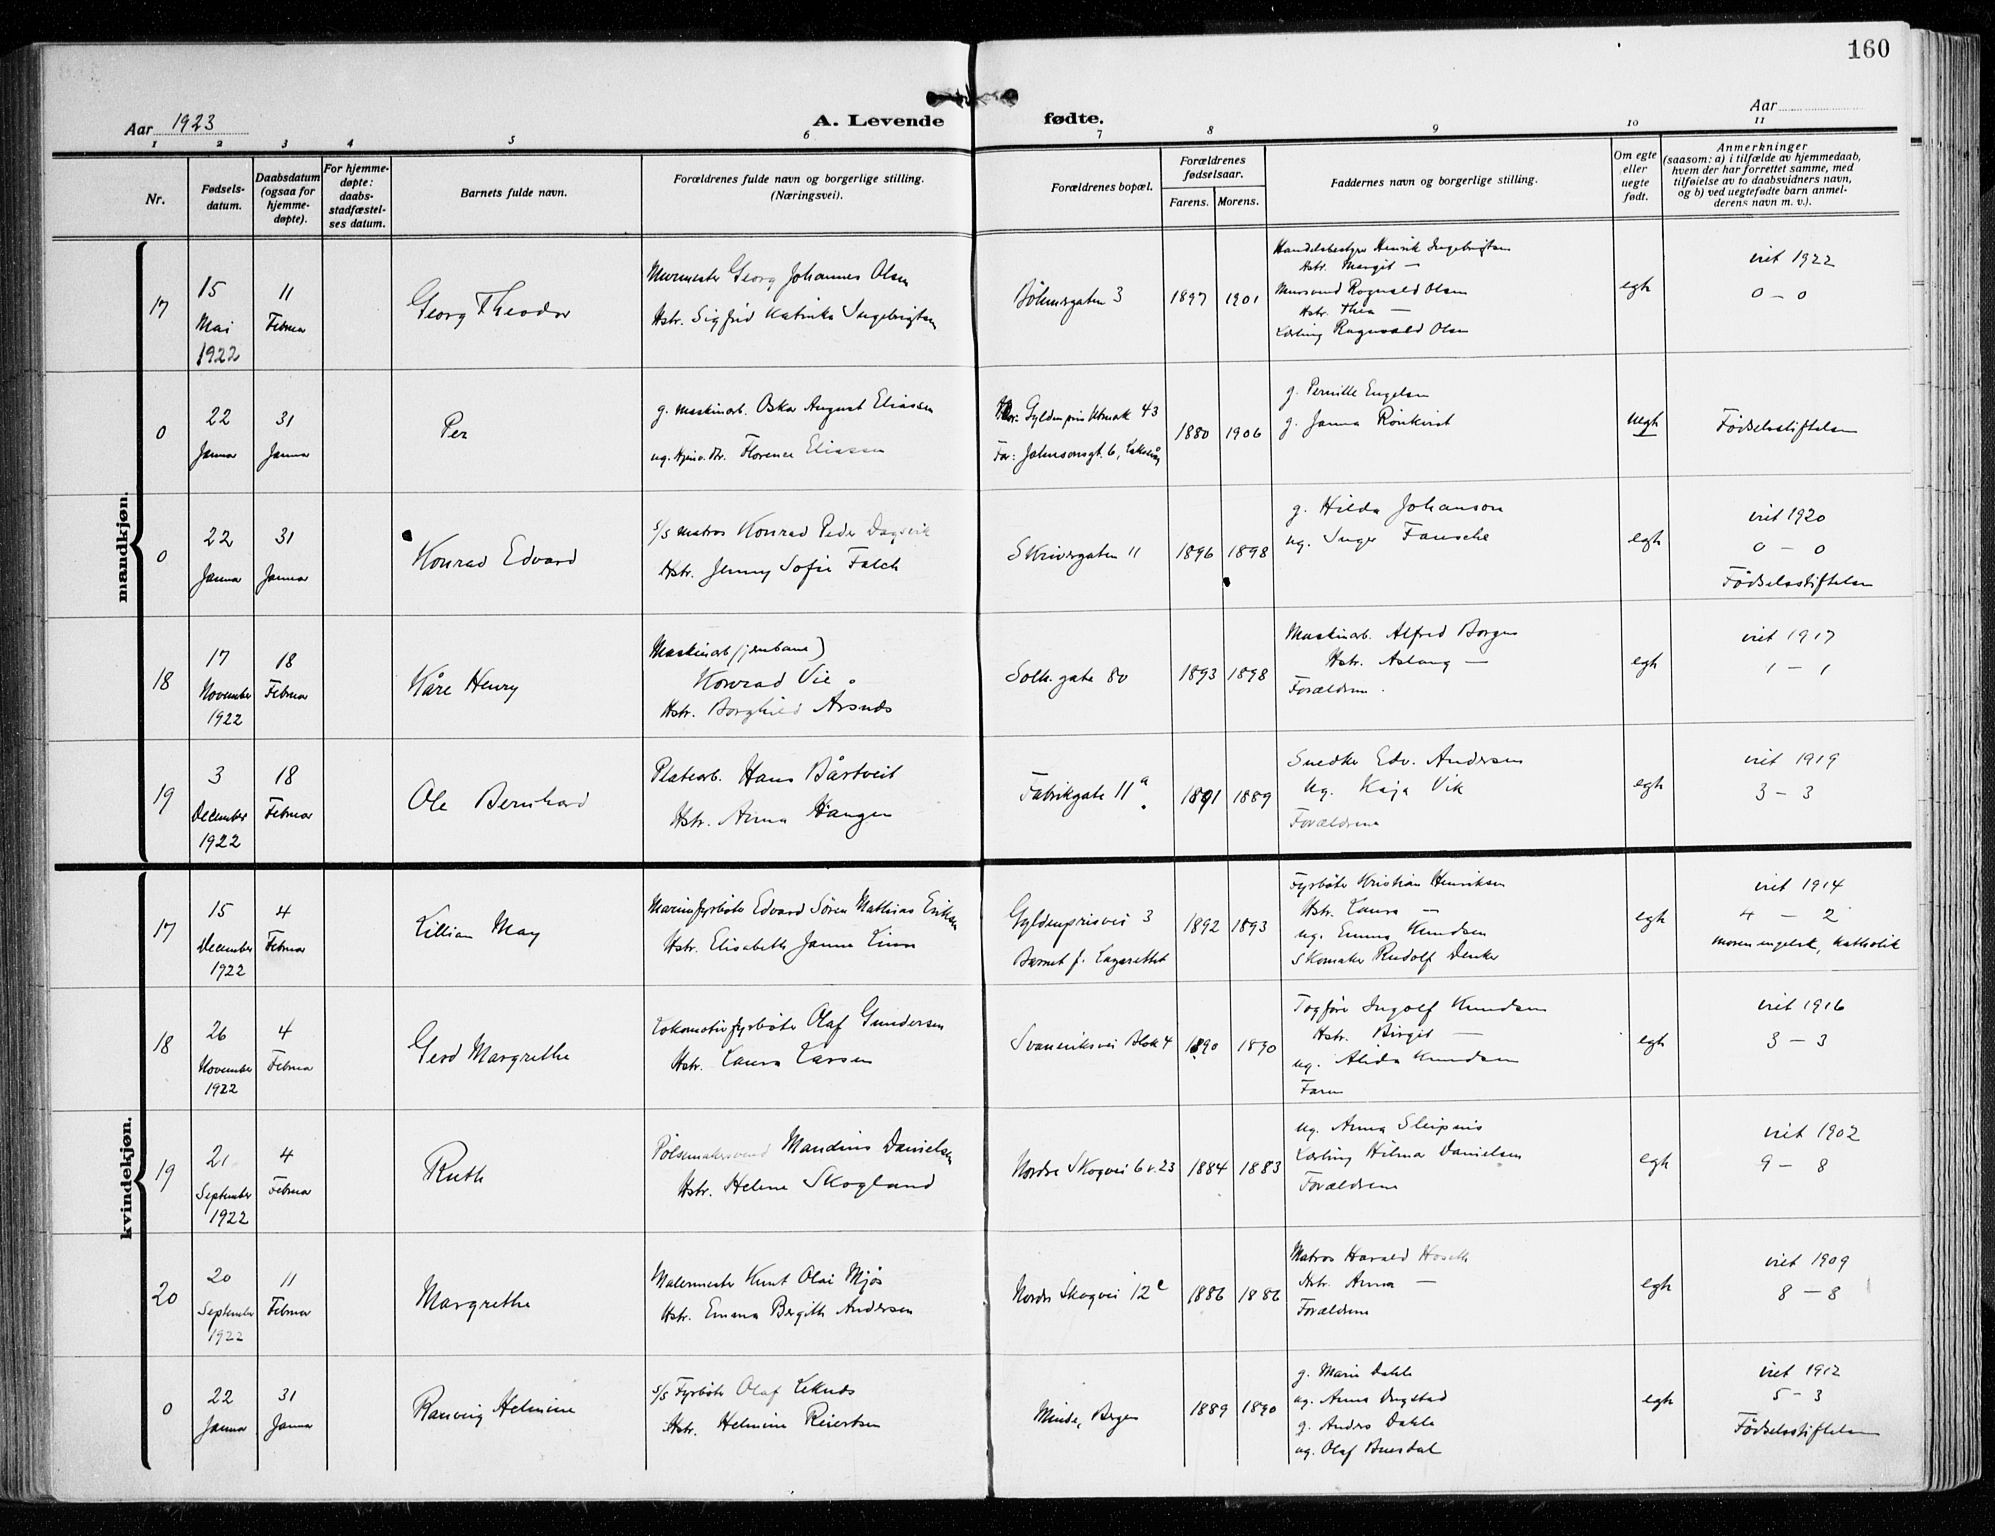 160
Aar 1923
A. Levende fødte.
Aar
1 2 3 4 5 6 7 8 9 10 11
Nr.
Fødsels-
datum.
Daabsdatum
(ogsaa for
hjemme-
døpte).
For hjemme-
døpte:
daabs-
stadfæstel-
ses datum.
Barnets fulde navn.
Forældrenes fulde navn og borgerlige stilling.
(Næringsvei).
Forældrenes bopæl.
Forældrenes
fødselsaar.
Farens. Morens.
Faddernes navn og borgerlige stilling.
Om egte
eller
uegte
født.
Anmerkninger
(saasom: a) i tilfælde av hjemmedaab,
hvem der har forrettet samme, med
tilføielse av to daabsvidners navn,
og b) ved uegtefødte barn anmel-
derens navn m. v.).
mandkjøn.
17
15
Mai
1922
11
Februar
Georg Theodor
Murmester Georg Johannes Olsen
Hstr. Sigfrid Katinka Ingebrigtsen
Böhmsgaten 3
1897 1901
Handelsbestyrer Henrik Ingebrigtsen
Hstr. Margit —
Mursvend Rognvald Olsen
Hstr. Thea —
Lærling Ragnvald Olsen
egte
viet 1922
0 – 0
0
22
Januar
31
Januar
Per
g. maskinarb. Oskar August Eliassen
ug. Florence Eliassen
Mor: Gyldenpris Utmark 43
Far: Johnsonsgt. 6, Laksevåg
1880 1906
g. Pernille Engelsen
g. Janna Rönkvist
uegte
Födselsstiftelsen
0
22
Januar
31
Januar
Konrad Edvard
s/s matros Konrad Peder Dagsvik
Hstr. Jenny Sofie Falch
Skrivergaten 11
1896 1898
g. Hilda Johanson
ug. Inger Fansche
egte
viet 1920
0 – 0
Födselsstiftelsen
18
17
November
1922
18
Februar
Kåre Henry
Maskinarb (jernbane)
Konrad Vie
Hstr. Borghild Årsnes
Solh. gate 80
1893 1898
Maskinarb. Alfred Borgen
Hstr. Aslaug —
Forældrene.
egte
viet 1917
1 – 1
19
3
December
1922
18
Februar
Ole Bernhard
Platearb. Hans Bårtveit
Hstr. Anna Haugen
Fabrikgate 11 a
1891 1889
Snedker Edv. Andersen
ug. Kaja Vik
Forældrene
egte
viet 1919
3 – 3
kvindekjøn.
17
15
December
1922
4
Februar
Lillian May
Marinefyrböter Edvard Sören Mathias Eriksen
Hstr. Elisabeth Janna Linn
Gyldenprisvei 3
Barnet f. Lazarettet
1892 1893
Fyrböter Kristian Henriksen
Hstr. Laura —
ug. Emma Knudsen
Skomaker Rudolf Denker
egte
viet 1914
4 – 2
moren engelsk, katholik
18
26
November
1922
4
Februar
Gerd Margrethe
Lokomotivfyrböter Olaf Gundersen
Hstr. Laura Larsen
Svaneviksvei Blok 4
1890 1890
Togförer Ingolf Knudsen
Hstr. Birgit —
ug. Alida Knudsen
Faren
egte
viet 1916
3 – 3
19
21
September
1922
4
Februar
Ruth
Pölsemakersvend Mandius Danielsen
Hstr. Helene Skogland
Nordre Skogvei 6 v. 23
1884 1883
ug. Anna Sleipnis
Lærling Hilmar Danielsen
Forældrene
egte
viet 1902
9 – 8
20
20
September
1922
11
Februar
Margrethe
Malermester Knut Olai Mjös
Hstr. Emma Bergith Andersen
Nordre Skogvei 12 c
1886 1886
Matros Harald Hoseth
Hstr. Anna —
Forældrene
egte
viet 1909
8 – 8
0
22
Januar
31
Januar
Ranveig Helmine
s/s Fyrböter Olaf Leknes
Hstr. Helmine Reiertsen
Minde, Bergen
1889 1890
g. Marie Dahle
ug. Anna Ongstad
g. Anders Dahle
ug. Olaf Buesdal
egte
viet 1912
5 – 3
Födselsstiftelsen